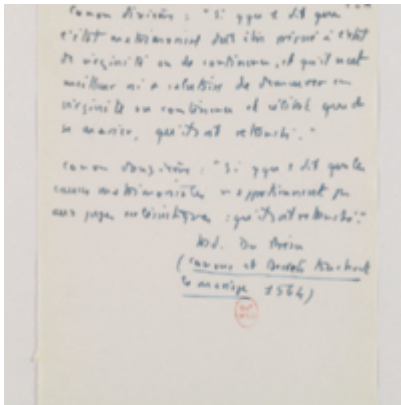 canon dixième : "Si qqu'un dit que
l'état matrimonial doit être préféré à l'état
de virginité ou de continence, et qu'il n'est
meilleur ni + salutaire de demeurer en
virginité ou continence et célibat que de
se marier, qu'il soit retranché."
canon douzième : "Si qqu'un dit que les
causes matrimoniales n'appartiennent pas
aux juges ecclésiastiques : qu'il soit retranché."
(Canons et Décrets touchant
le mariage 1564)